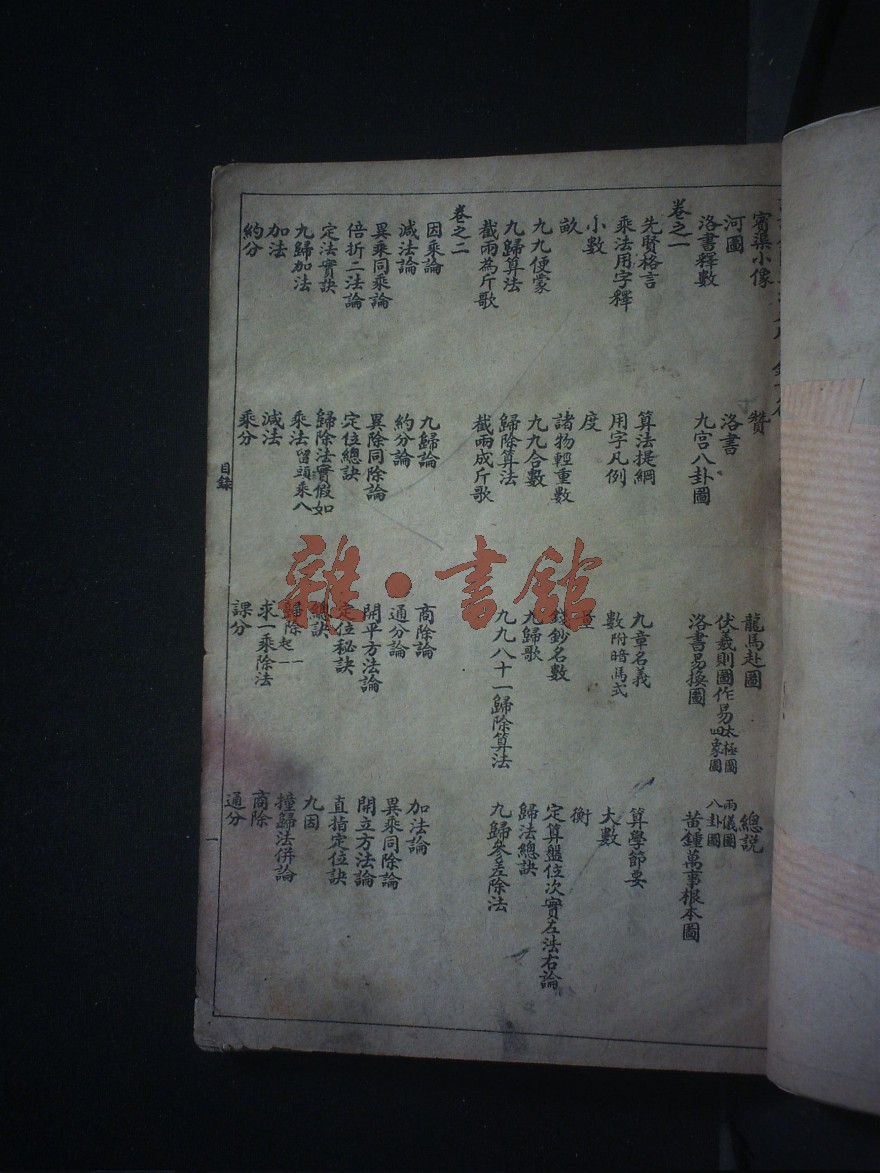 賓渠小像 贊 龍馬赴圖 總說
河圖 洛書 伏羲則圖作易太極圖四象圖 兩儀圖八卦圖
洛書釋數 九宮八卦圖 洛書易換圖 黃鍾萬事根本圖
卷之一
先賢格言 算法提綱 九章名義 算學節要
乘法用字釋 用字凡例 數附暗馬式 大數
小數 度 量 衡
畝 諸物輕重數 錢鈔名數 定算盤位次實左法右論
九九便蒙 九九合數 九歸歌 歸法總訣
九歸算法 歸除算法 九九八十一歸除算法 九歸參差除法
截兩為斤歌 截兩成斤歌
卷之二
因乘論 九歸論 商除論 加法論
減法論 約分論 通分論 異乘同除論
異乘同乘論 異除同除論 開平方法論 開立方法論
倍折二法論 定位總訣 定位秘訣 直指定位訣
定法實訣 歸除法實假如 總訣 九因
九歸加法 乘法留頭乘八 歸除起一 撞歸法併論
加法 減法 求一乘除法 商除
約分 乘分 課分 通分
目錄
一
雜·書館